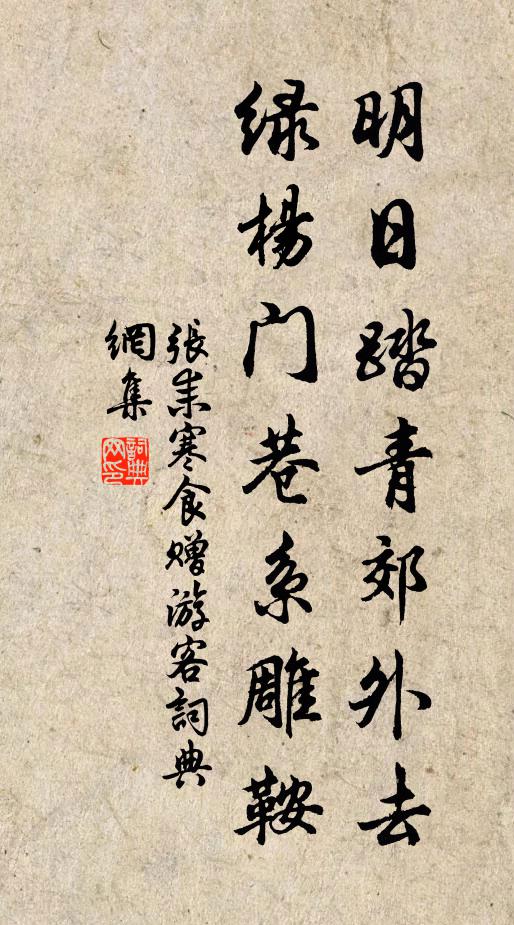 明日踏青郊外去
绿杨门巷系雕鞍
張耒寒食赠游客詞典
網集
詞典
网印